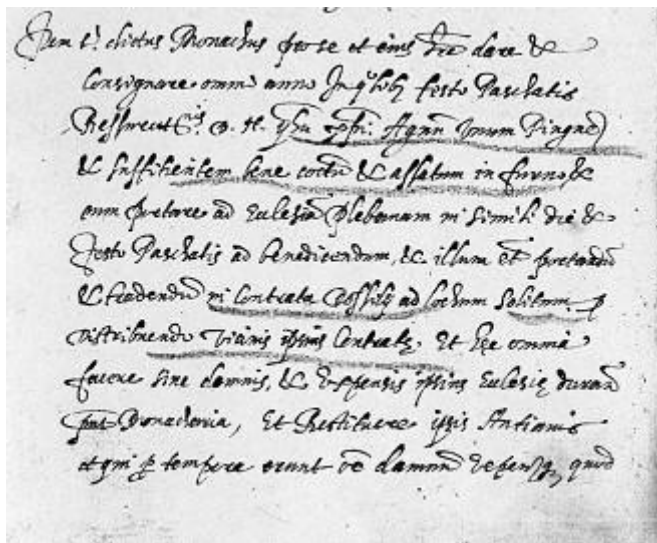 Item q. dictus Monachus pro se et eius here dare &
Consignare omni anno In qolibet festo Paschatis
Resurrect.nis D. N. yhu xpri. Agnum Unum Pingue
& sufficientem bene coctum & assatum in furno, &
eum portare ad Eclesiã plebanam in simili die &
festo Paschatis ad benedicendum, &. illum et portandũ
& tradendũ in Contrata ad lochum solitum p
distribuendo Vicinis ipsius Contratę. Et hęc omnia
facere sine damnis, &. Expensis ipsius Eclesię duran
pnte Monacheria, Et Restituere ipsis Antianis
et qui p tempore erunt oẽ damnũ quod